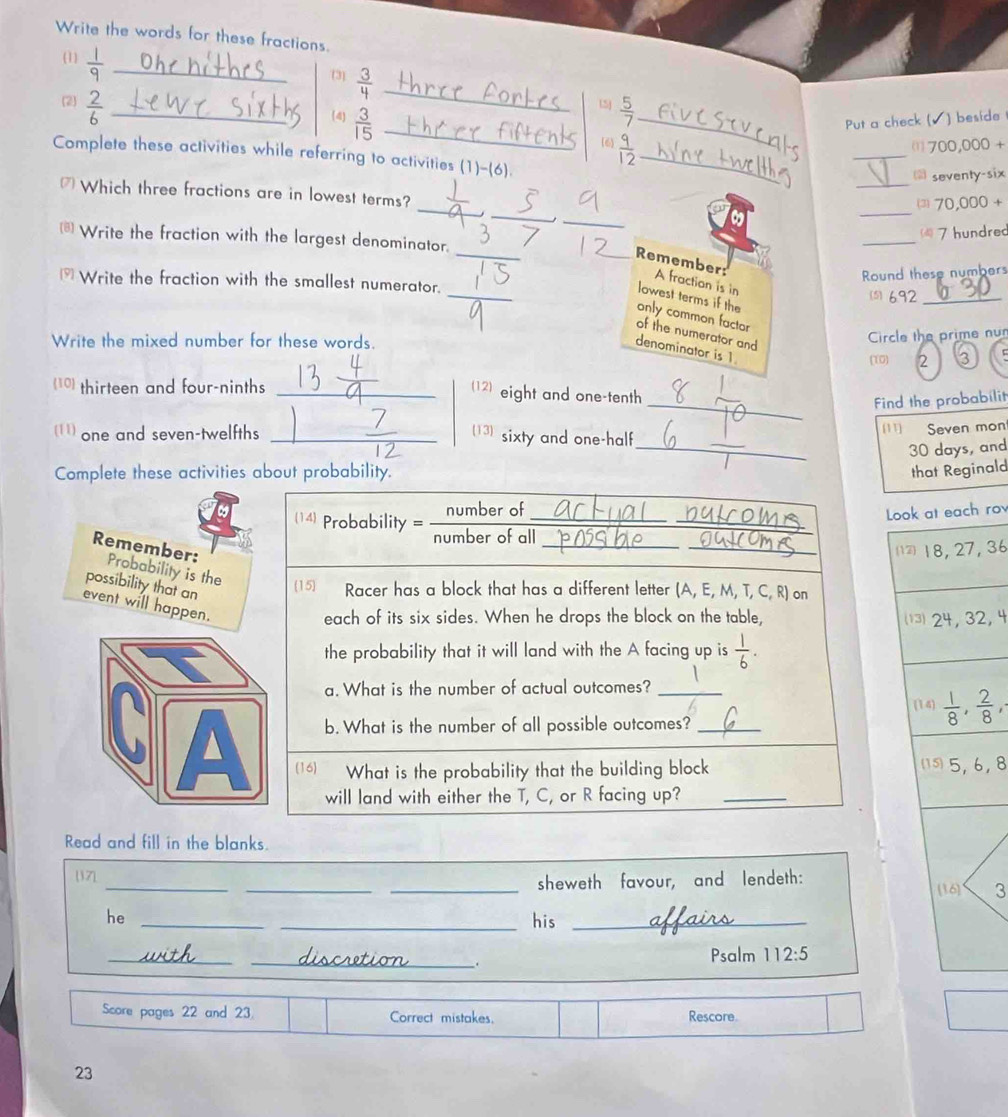 Write the words for these fractions.
(1) 1/9 one nithes
(2) 2/6 tewe sixths
(3) 3/4 three fortes
(4) 3/15 three fiftents
(5) 5/7 five sevents
(6) 9/12 nine twelths
Complete these activities while referring to activities (1)–(6).
(7) Which three fractions are in lowest terms? 1/9, 5/7, 9/12
(8) Write the fraction with the largest denominator. 3/15
(9) Write the fraction with the smallest numerator. 9
Remember:
A fraction is in
lowest terms if the
only common factor
of the numerator and
denominator is 1.
Write the mixed number for these words.
(10) thirteen and four-ninths 13 4/9
(11) one and seven-twelfths 1 7/12
(12) eight and one-tenth 8 1/10
(13) sixty and one-half 6 1/1
Complete these activities about probability.
Remember:
Probability is the
possibility that an
event will happen.
T
C A
(14) Probability = number of actual outcoms
number of all possible outcoms
(15) Racer has a block that has a different letter (A, E, M, T, C, R) on
each of its six sides. When he drops the block on the table,
the probability that it will land with the A facing up is 1/6.
a. What is the number of actual outcomes? 1
b. What is the number of all possible outcomes? 6
(16) What is the probability that the building block
will land with either the T, C, or R facing up?
Read and fill in the blanks.
(17) sheweth favour, and lendeth:
he his affairs
with discretion. Psalm 112:5
Score pages 22 and 23. Correct mistakes. Rescore.
23
Put a check (✓) beside
(1) 700,000 +
(2) seventy-six
(3) 70,000 +
(4) 7 hundred
Round these numbers
(5) 692 630
Circle the prime
(10) 2 3
Find the
(11) Seven
30 days, and
that Reginald
Look at each
(12) 18, 27, 36
(13) 24, 32, 4
(14) 1/8, 2/8,
(15) 5, 6, 8
(16) 3